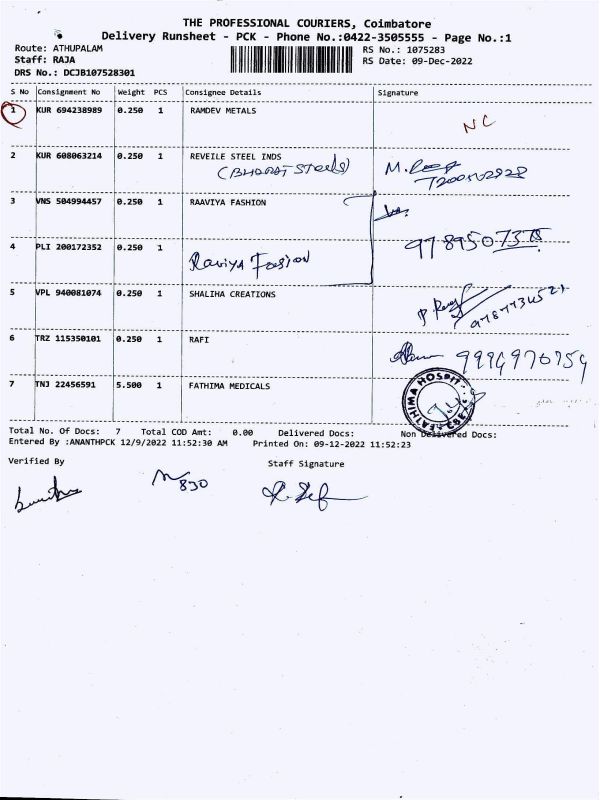 THE PROFESSIONAL COURIERS, Coimbatore
Delivery Runsheet - PCK - Phone No.:0422-3505555 - Page No.:1
Route: ATHUPALAM RS No.: 1075283
Staff: RAJA RS Date: 09-Dec-2022
DRS No.: DCJB107528301
S No Consignment No Weight PCS Consignee Details Signature
1 KUR 694238989 0.250 1 RAMDEV METALS NC
2 KUR 608063214 0.250 1 REVEILE STEEL INDS
(BHARAT Steels)
3 VNS 504994457 0.250 1 RAAVIYA FASHION
4 PLI 200172352 0.250 1
Raviya Fasion
5 VPL 940081074 0.250 1 SHALIHA CREATIONS
6 TRZ 115350101 0.250 1 RAFI
7 TNJ 22456591 5.500 1 FATHIMA MEDICALS
FATHIMA HOSPIT
Total No. Of Docs: 7 Total COD Amt: 0.00 Delivered Docs: Non Delivered Docs:
Entered By :ANANTHPCK 12/9/2022 11:52:30 AM Printed On: 09-12-2022 11:52:23
Verified By Staff Signature
830